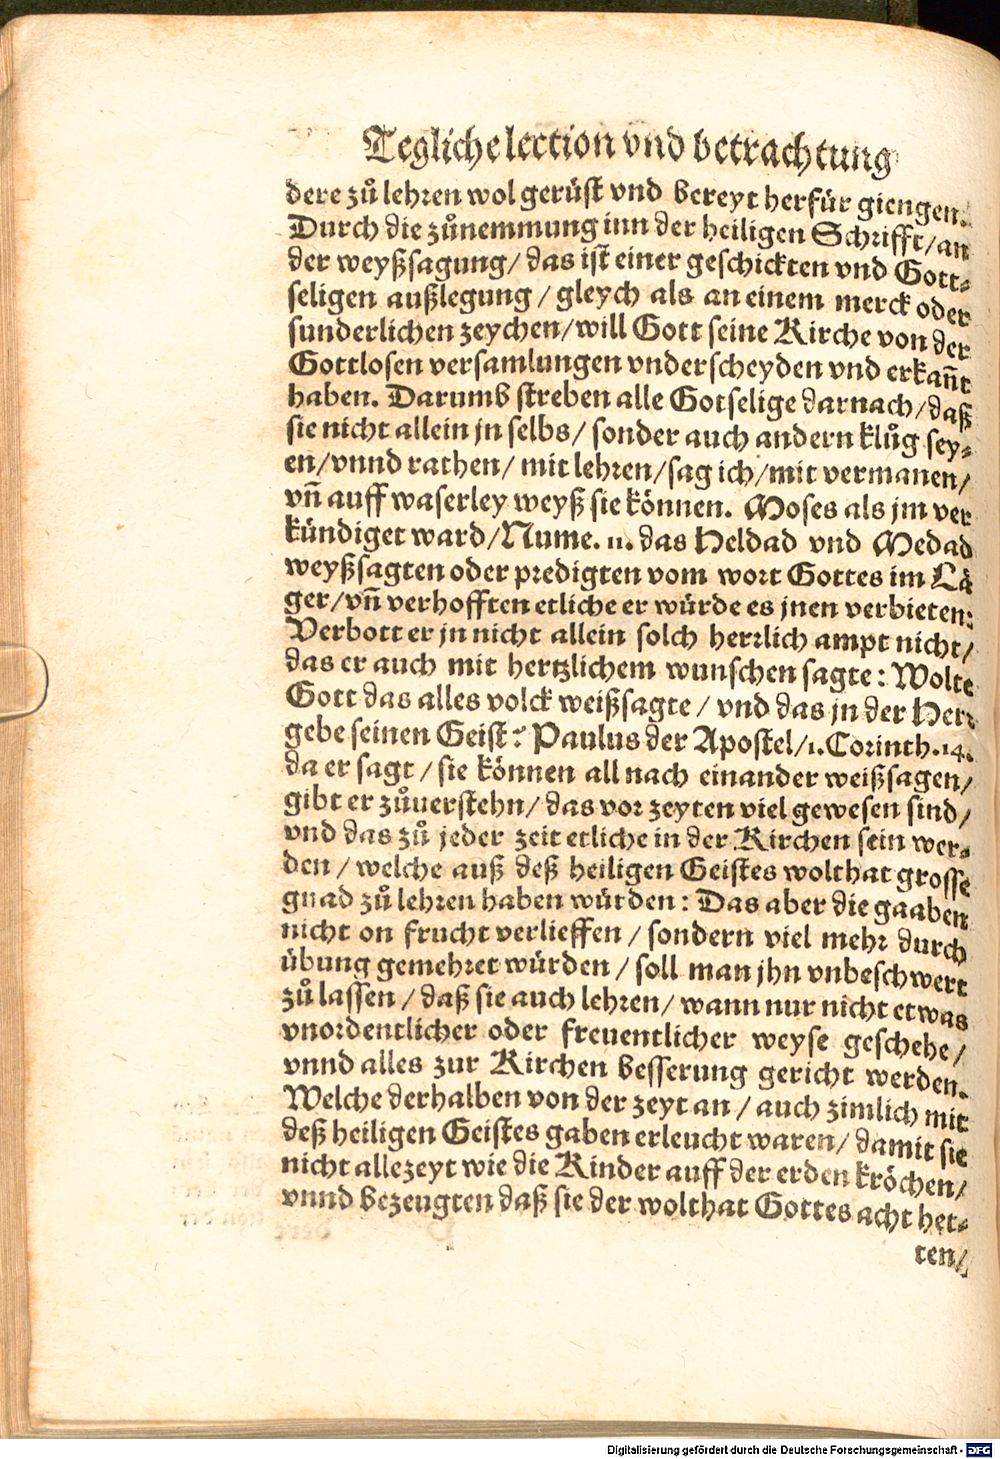 Teglich election vnd betrachtung
dere zů lehren wol gerüst vnd bereyt herfür giengen.
Durch die zůnemmung inn der heiligen Schrifft/an
der weyßsagung/das ist einer geschickten vnd Gott⸗
seligen außlegung/gleych als an einem merck oder
sunderlichen zeychen/will Gott seine Kirche von der
Gottlosen versamlungen vnderscheyden vnd erkañt
haben. Darumb streben alle Gotselige darnach/daß
sie nicht allein jn selbs/sonder auch andern klůg sey⸗
en/vnnd rathen/mit lehren/sag ich/mit vermanen/
vñ auff waserley weyß sie können. Moses als jm ver
kündiget ward/Nume.11.das Heldad vnd Medad
weyßsagten oder predigten vom wort Gottes im Lä
ger/vñ verhofften etliche er würde es jnen verbieten:
Verbott er jn nicht allein solch herrlich ampt nicht/
das er auch mit hertzlichem wunschen sagte: Wolte
Gott das alles volck weißsagte/vnd das jn der Herr
gebe seinen Geist? Paulus der Apostel/1.Corinth.14.
da er sagt/sie können all nach einander weißsagen/
gibt er zůuerstehn/das vor zeyten viel gewesen sind/
vnd das zů jeder zeit etliche in der Kirchen sein wer⸗
den/welche auß deß heiligen Geistes wolthat grosse
gnad zů lehren haben würden: Das aber die gaaben
nicht on frucht verlieffen/sondern viel mehr durch
übung gemehret würden/soll man jhn vnbeschwert
zů lassen/daß sie auch lehren/wann nur nicht etwas
vnordentlicher oder freuentlicher weyse geschehe/
vnnd alles zur Kirchen besserung gericht werden.
Welche derhalben von der zeyt an/auch zimlich mit
deß heiligen Geistes gaben erleucht waren/damit sie
nicht allezeyt wie die Kinder auff der erden kröchen/
vnnd bezeugten daß sie der wolthat Gottes acht het⸗
ten/
Digitalisierung gefördert durch die Deutsche Forschungsgemeinschaft - DFG